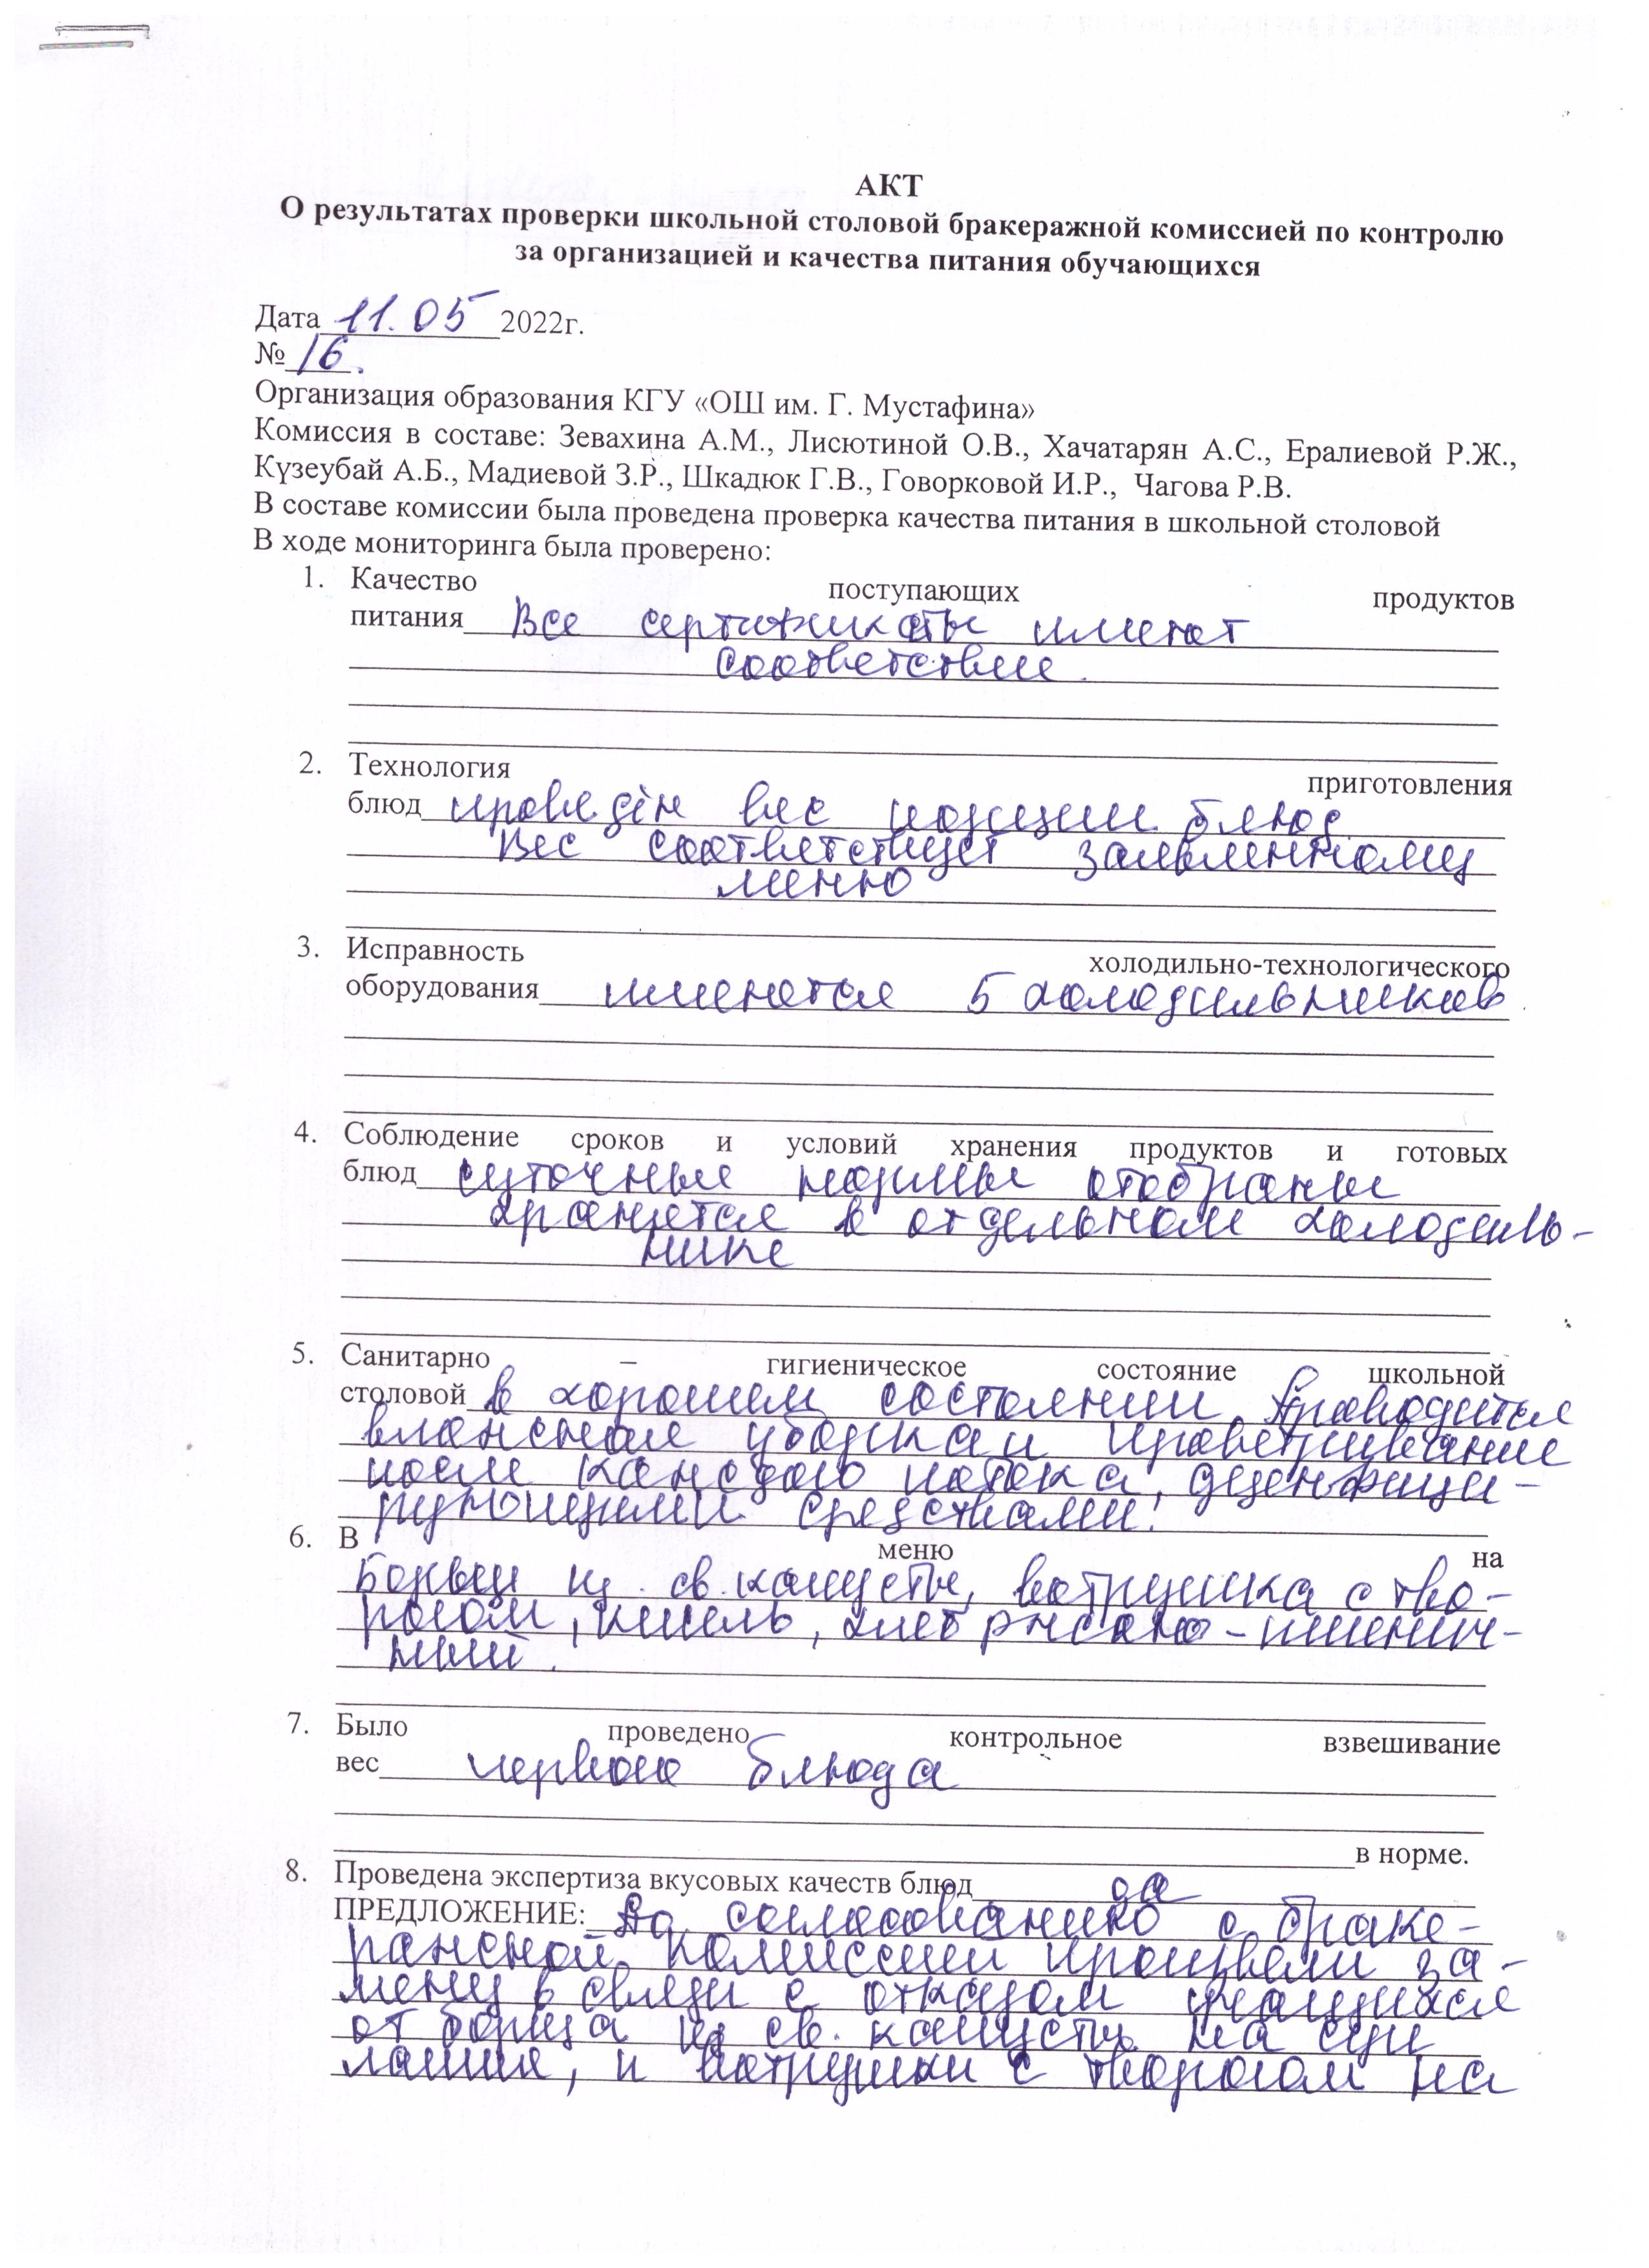 АКТ
О результатах проверки школьной столовой бракеражной комиссией по контролю
за организацией и качества питания обучающихся
Дата 11.05 2022г.
№ 16.
Организация образования КГУ «ОШ им. Г. Мустафина»
Комиссия в составе: Зевахина А.М., Лисютиной О.В., Хачатарян А.С., Ералиевой Р.Ж.,
Күзеубай А.Б., Мадиевой З.Р., Шкадюк Г.В., Говорковой И.Р., Чагова Р.В.
В составе комиссии была проведена проверка качества питания в школьной столовой
В ходе мониторинга была проверено:
1. Качество поступающих продуктов
питания Все сертификаты имеют
соответствие.
2. Технология приготовления
блюд проведён вес порции блюд.
Вес соответствует заявленному
меню
3. Исправность холодильно-технологического
оборудования имеются 5 холодильников.
4. Соблюдение сроков и условий хранения продуктов и готовых
блюд суточные нормы отобраны
хранятся в отдельном холодиль-
нике
5. Санитарно – гигиеническое состояние школьной
столовой в хорошем состоянии. Проводится
влажная уборка и проветривание
после каждого потока, дезинфици-
рующими средствами.
6. В меню на
Борщ из св. капусты, ватрушка с тво-
рогом, кисель, хлеб ржано-пшенич-
ный.
7. Было проведено контрольное взвешивание
вес первого блюда
в норме.
8. Проведена экспертиза вкусовых качеств блюд да
ПРЕДЛОЖЕНИЕ: По согласованию с браке-
ражной комиссии произвели за-
мену в связи с отказом учащихся
от борща из св. капусты на суп
лапша, и ватрушки с творогом на